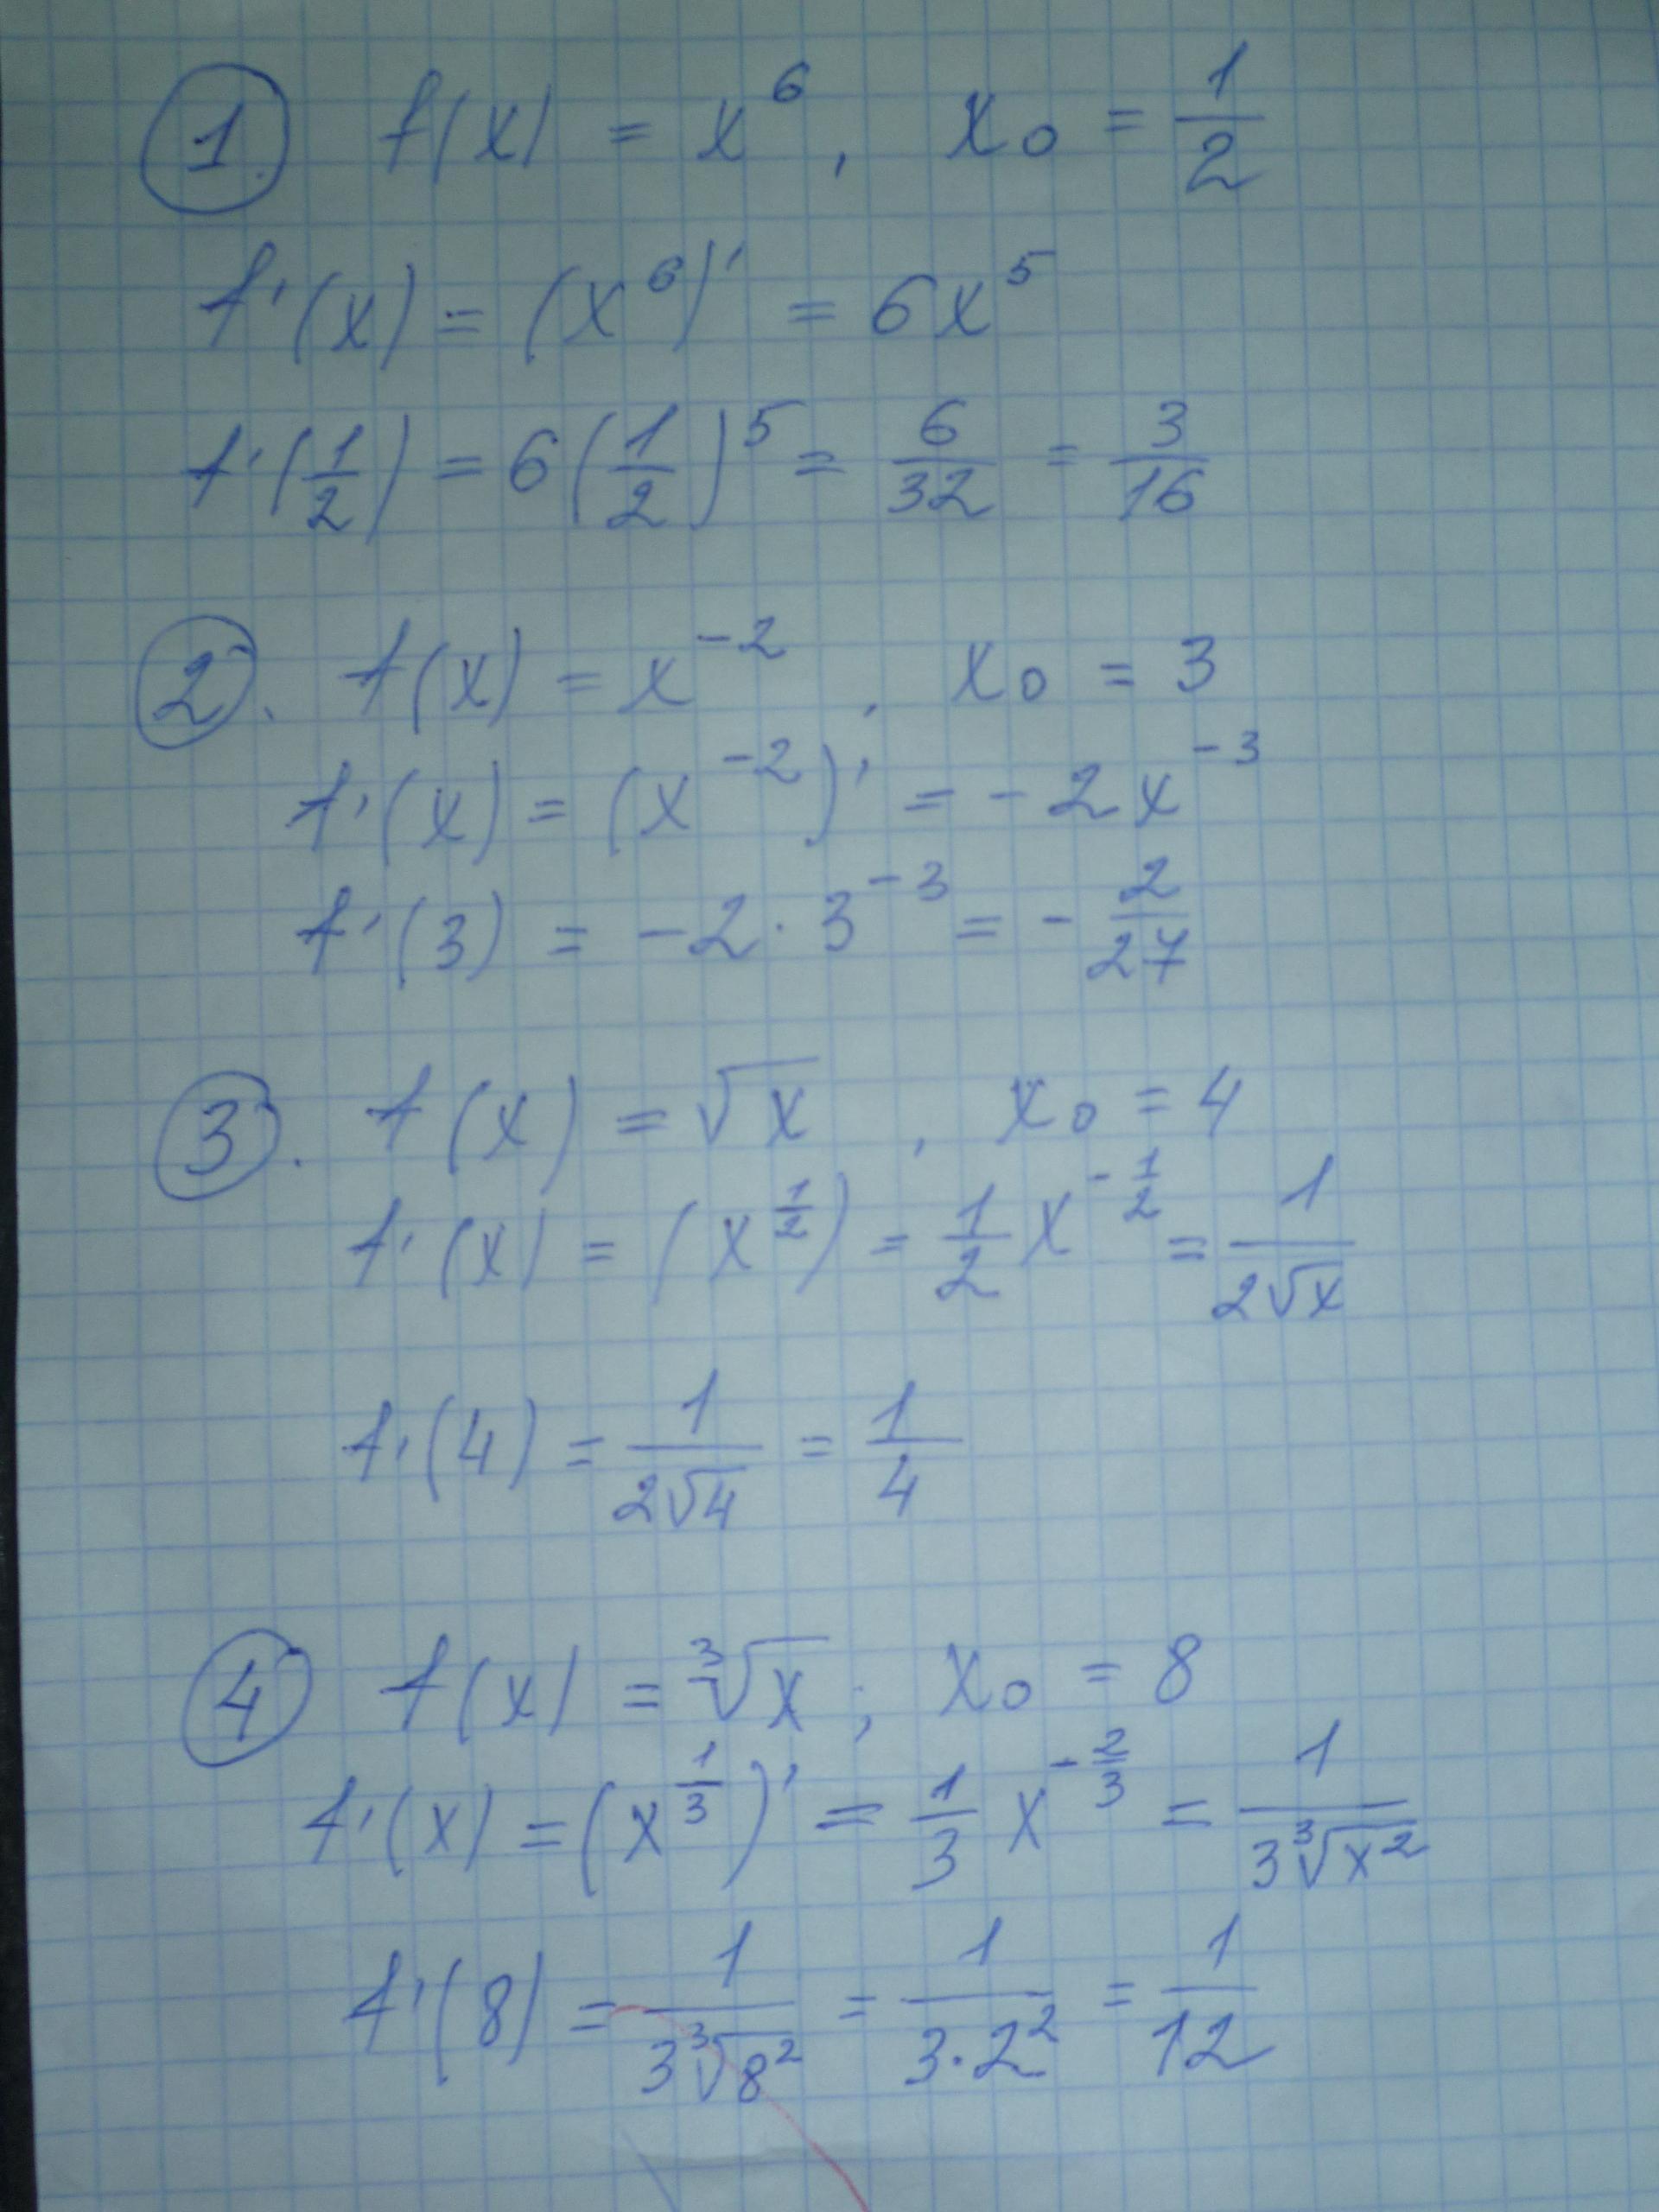 1. f(x) = x^6, x₀ = 1/2
f'(x) = (x^6)' = 6x^5
f'(1/2) = 6(1/2)^5 = 6/32 = 3/16
2. f(x) = x^-2, x₀ = 3
f'(x) = (x^-2)' = -2x^-3
f'(3) = -2·3^-3 = -2/27
3. f(x) = √x, x₀ = 4
f'(x) = (x^1/2) = 1/2 x^-1/2 = 1/(2√x)
f'(4) = 1/(2√4) = 1/4
4 f(x) = ∛x; x₀ = 8
f'(x) = (x^1/3)' = 1/3 x^-2/3 = 1/(3∛x²)
f'(8) = 1/(3∛8²) = 1/(3·2²) = 1/12